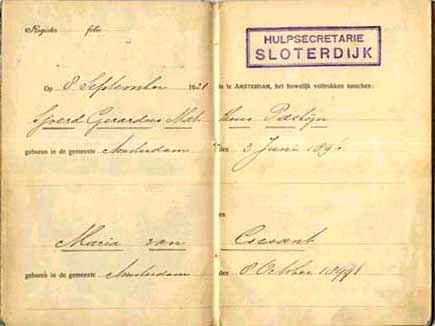 Register folio
HULPSECRETARIE
SLOTERDIJK
Op 8 September 1921 is te AMSTERDAM, het huwelijk voltrokken tusschen:
Sjoerd Gerardus Pastijn
geboren in de gemeente Amsterdam den 3 Juni
en
Maria van
geboren in de gemeente Amsterdam den 8 October